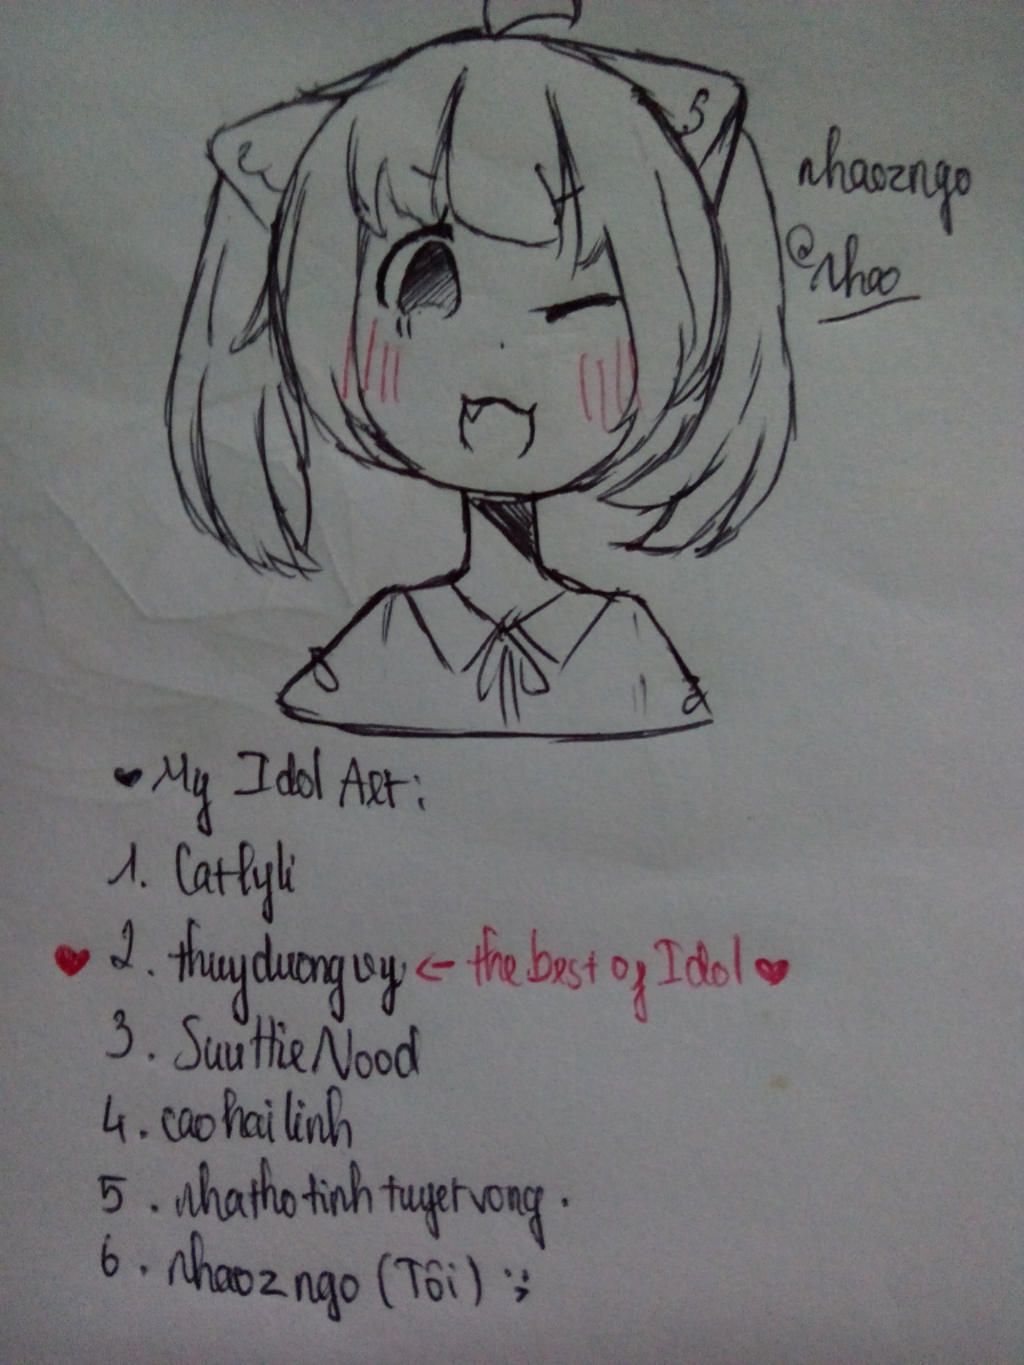 nhaozngo
@nhao
My Idol Art:
1. Catlyli
2. thuyduongvy ← the best of Idol
3. SuuttieNood
4. caohailinh
5. nhathotinhtuyetvong.
6. nhaozngo (Tôi) :;